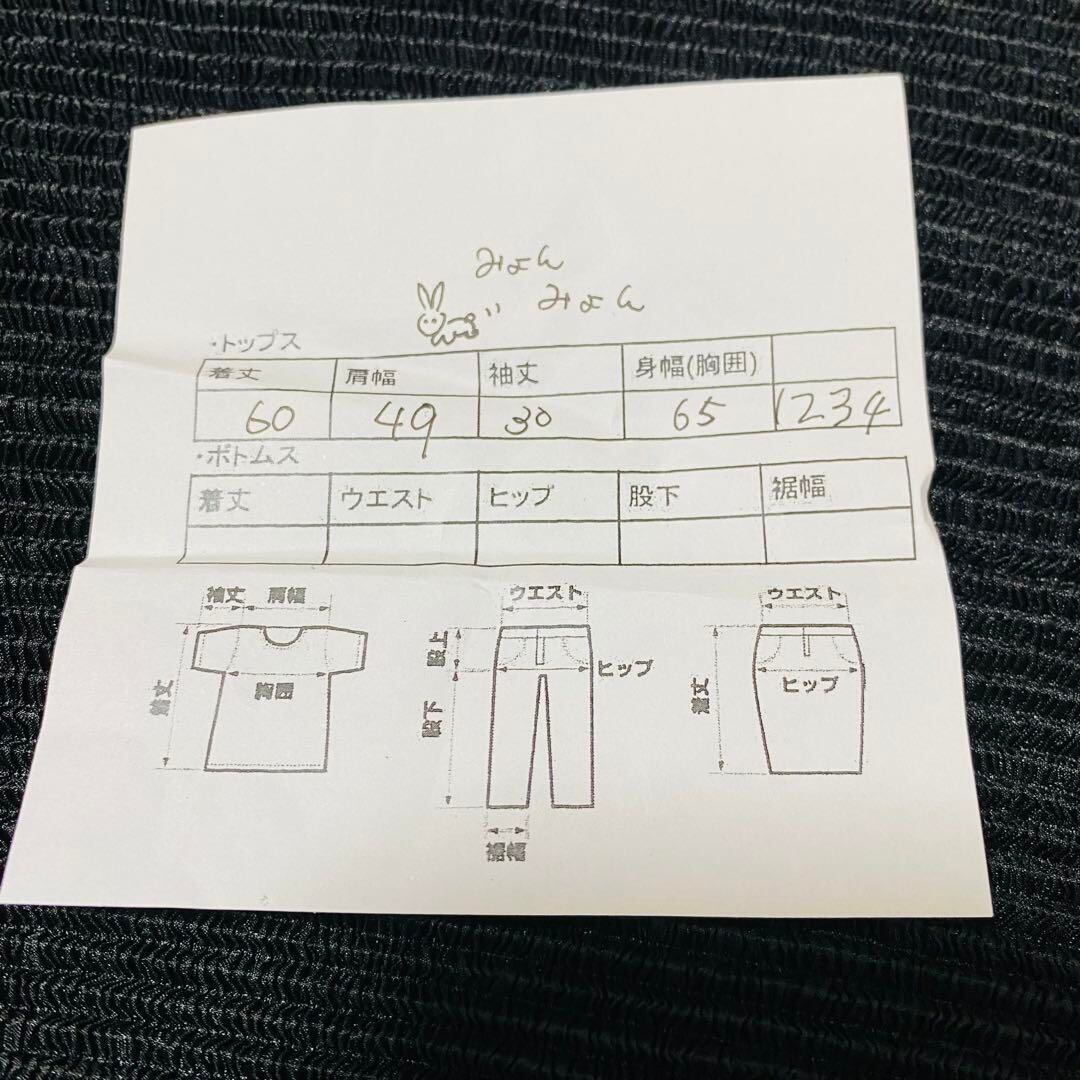 みよん
みよん
・トップス
着丈 肩幅 袖丈 身幅(胸囲)
60 49 30 65 1234
・ボトムス
着丈 ウエスト ヒップ 股下 裾幅
袖丈 肩幅
着丈
胸囲
ウエスト
股上
ヒップ
股下
裾幅
ウエスト
着丈
ヒップ